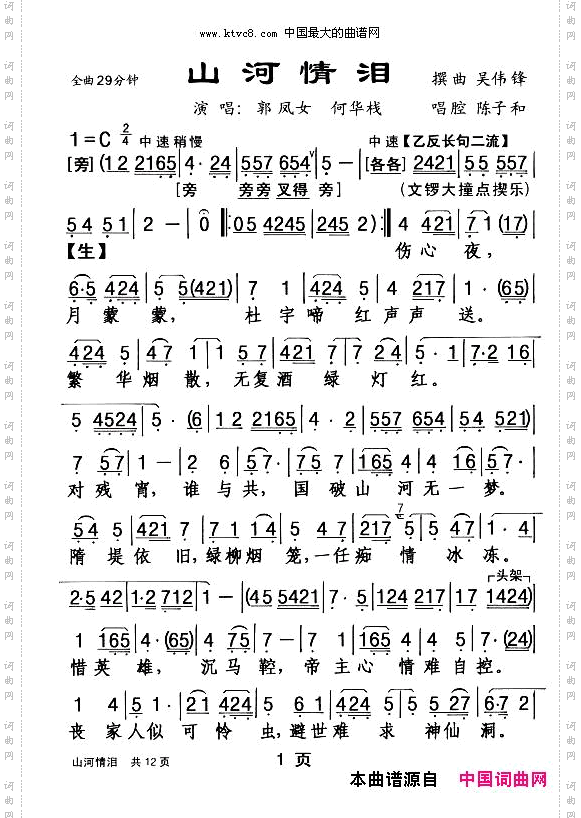 www.ktvc8.com 中国最大的曲谱网
全曲29分钟 山河情泪 撰曲 吴伟锋
演唱：郭凤女 何华栈 唱腔 陈子和
1=C 2/4 中速稍慢 中速【乙反长句二流】
[旁] (1 2 2165 | 4· 24 | 557 654 | 5 - | [各各] 2421 | 5 5 557 |
[旁 旁旁叉得 旁] (文锣大撞点揳乐)
54 51 | 2 - | 0 ‖: 05 4245 | 245 245 :‖ 4 421 | 7 1 (17) |
【生】 伤心夜，
6·5 424 | 5 5 (421) | 7 1 | 424 5 | 2 5 | 1 - (65) |
月蒙蒙， 杜宇啼红声声送。
424 5 | 47 1 | 1 5 | 245 2 | 421 24 | 5 2 1 | 7·2 16 |
繁华烟散，无复酒绿灯红。
5 4524 | 5· (6 | 12 2165 | 4· 2 | 557 654 | 54 521) |
7 57 | 1 - | 2 6 | 5 75 | 1 165 | 4 4 | 466 5 57 |
对残宵，谁与共，国破山河无一梦。
54 5 | 421 7 | 1 7124 | 1· 5 | 4 2 | 217 5 | 5 47 | 1· 4 |
隋堤依旧，绿柳烟笼，一任痴情冰冻。
头架
2·5 42 | 1·2 712 | 1 - | (45 5421 | 7 5· | 124 217 | 1424) |
1 165 | 4· (65) | 4 75 | 5 - | 1 7 1 | 124 17 | 5· (24) |
惜英雄，沉马鞚，帝主心情难自控。
1 4 | 5 1· | 21 424 | 5 1 | 51 24 | 5 27 | 6·7 2 |
丧家人似可怜虫，避世难求神仙洞。
山河情泪 共12页 1页
本曲谱源自 中国词曲网